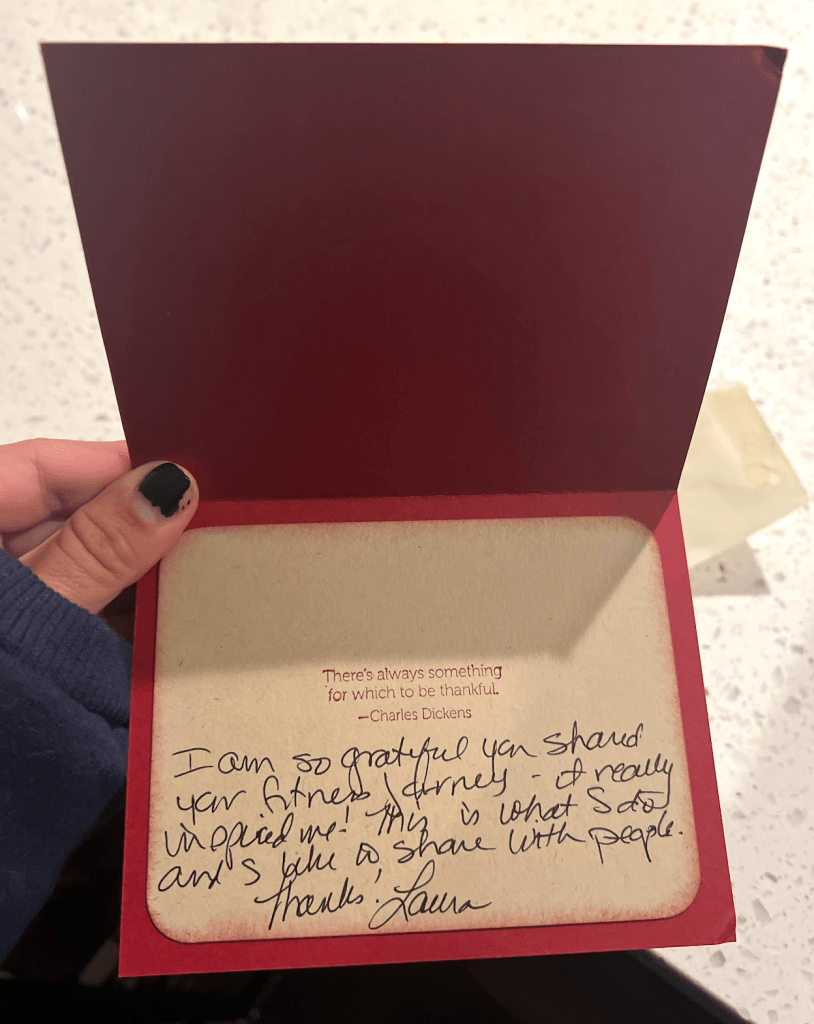 There's always something
for which to be thankful.
—Charles Dickens
I am so grateful you shared
your fitness journey - it really
inspired me! This is what I do
and I like to share with people.
Thanks! Laura